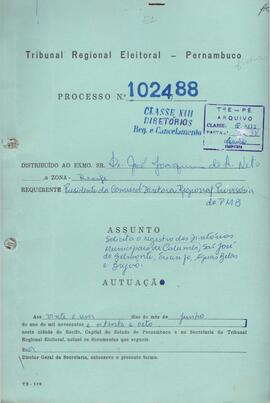 Tribunal Regional Eleitoral - Pernambuco
PROCESSO N.º 102488
CLASSE XIII
DIRETÓRIOS
Reg. e Cancelamento
TRE-PE
ARQUIVO
CLASSE:
DISTRIBUÍDO AO EXMO. SR. Dr. José Joaquim de A. Neto
A ZONA- Recife
REQUERENTE Presidente da Comissão Diretora Regional Provisória
do PMB
ASSUNTO
Solicita o registro dos Diretórios
Municipais de Calumbi, São José
do Belmonte, Triunfo, Águas Belas
e Brejo.
AUTUAÇÃO
Aos vinte e um dias do mês de junho
do ano de mil novecentos e oitenta e oito
nesta cidade do Recife, Capital do Estado de Pernambuco e na Secretaria do Tribunal
Regional Eleitoral, autuei os documentos que seguem.
Eu,
Diretor Geral da Secretaria, subscrevo o presente termo.